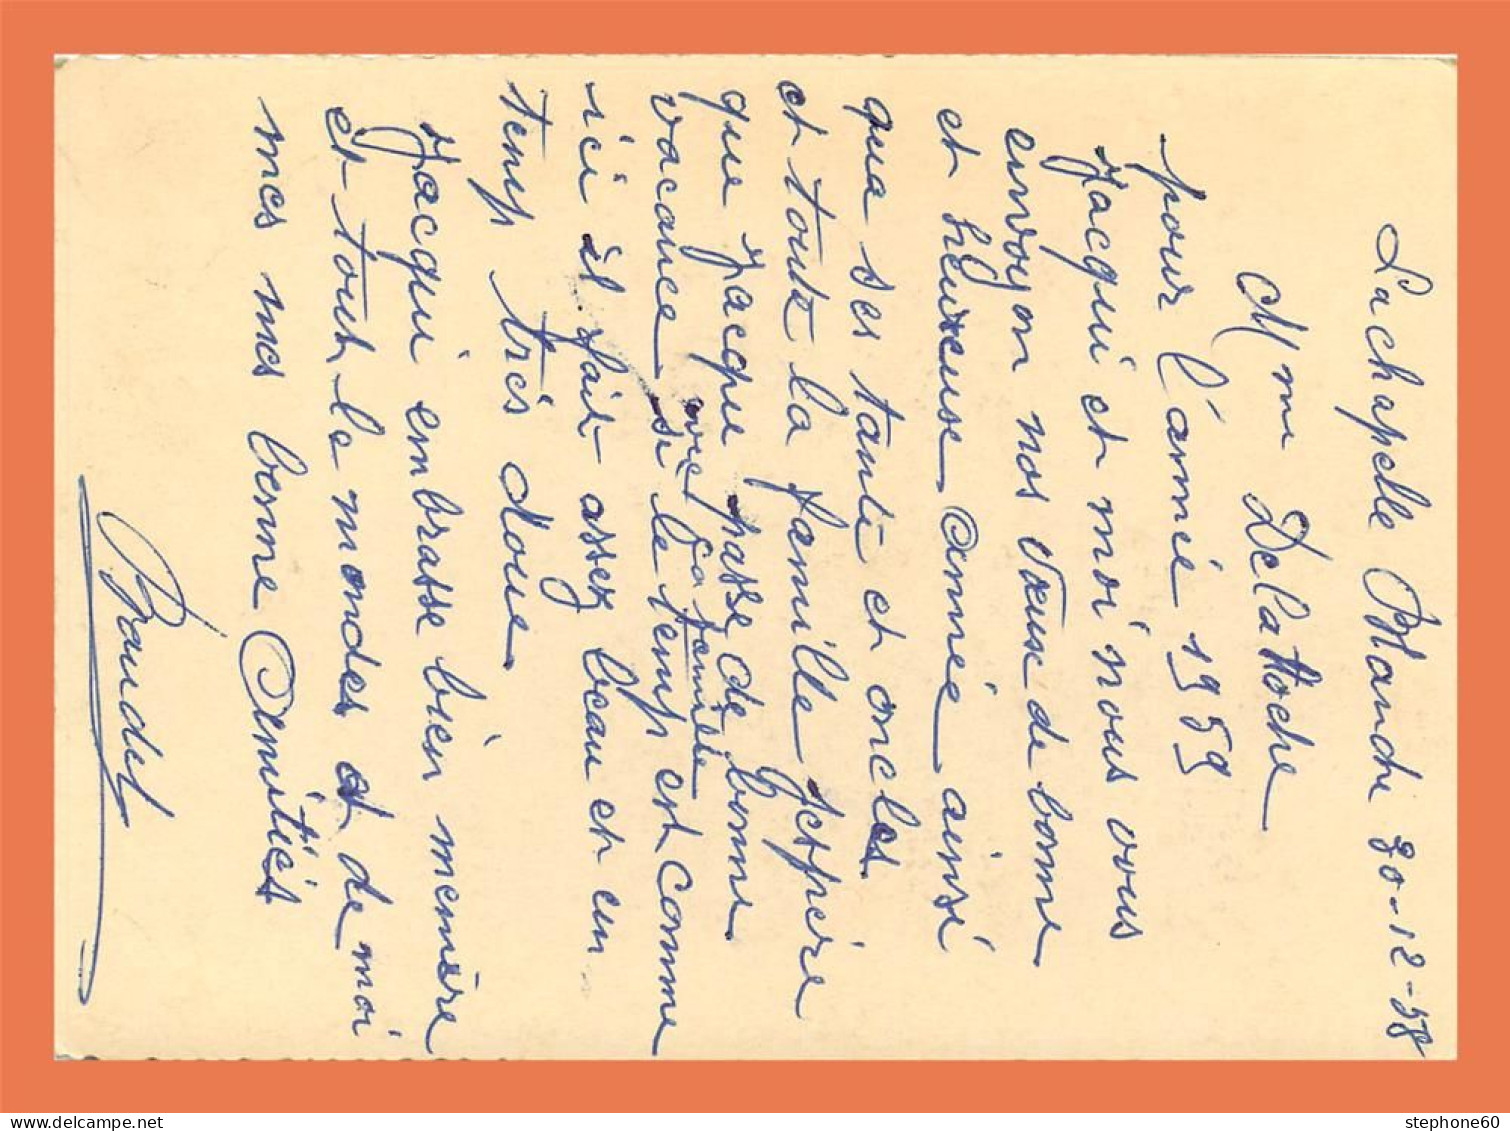 Lachapelle Blandi 30-12-58
Mme Delattoche
pour l'année 1959
Jacqui et moi nous vous
envoyon nos vœux de bonne
et heureuse année ainsi
qua ses tante et oncles
et toute la famille jespère
que Jacque passe de bonne
vacance avec ça famille
si le temp est comme
ici il fait assez beau et un
temp très doux.
Jacqui embrasse bien memère
et tout le mondes et de moi
mes mes bonne Amitiés
Baudet
stephone60